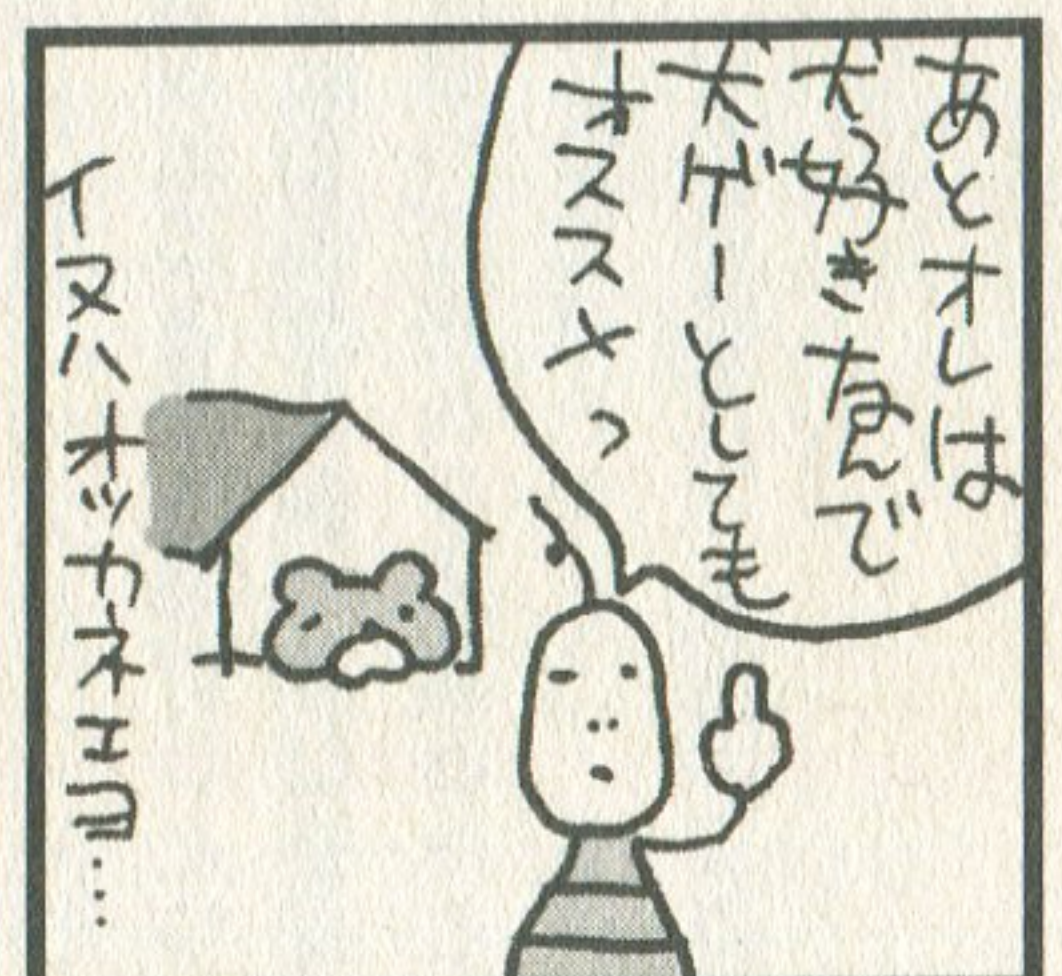 あとオレは
犬好きなんで
犬ゲーとしても
オススメっ
イヌハオッカネエヨ…